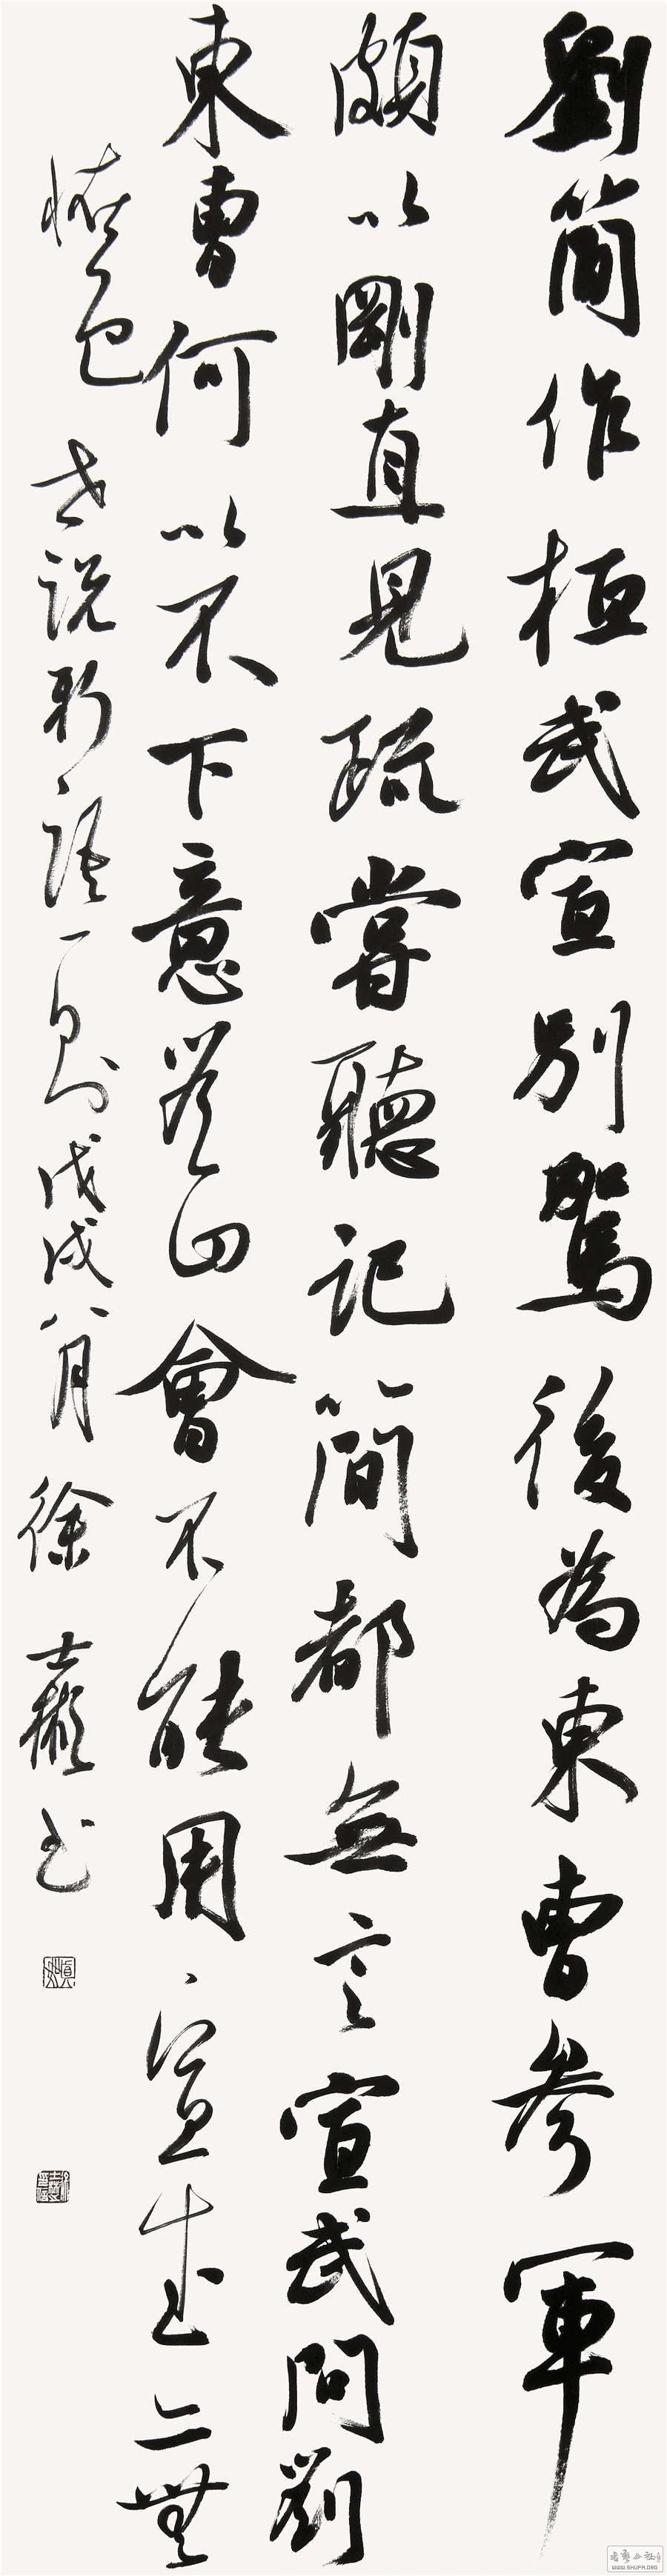 劉簡作桓武宣別駕後為東曹參軍
頗以剛直見疏嘗聽記簡都無言宣武問劉
東曹何以不下意答曰會不能用宣武亦無
怪色 世說新語一則戊戌八月徐士書
WWW.SHUFA.ORG